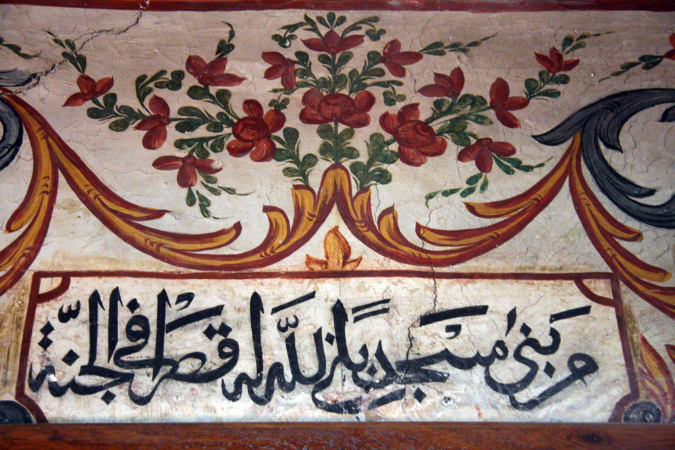 من بنى مسجدا بنا لله له قصرا في الجنّة